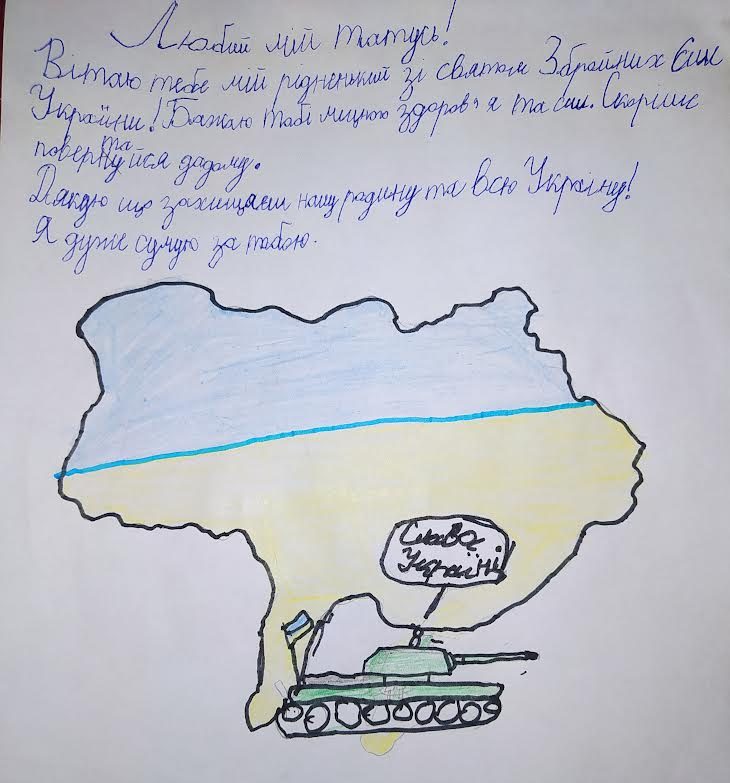 Любий мій татусь!
Вітаю тебе мій рідненький зі святом Збройних Сил
України! Бажаю тобі міцного здоров'я та сил. Скоріше
повертайся дадому.
Дякую що захищаєш нашу родину та всю Україну!
Я дуже сумую за тобою.
Слава
Україні!